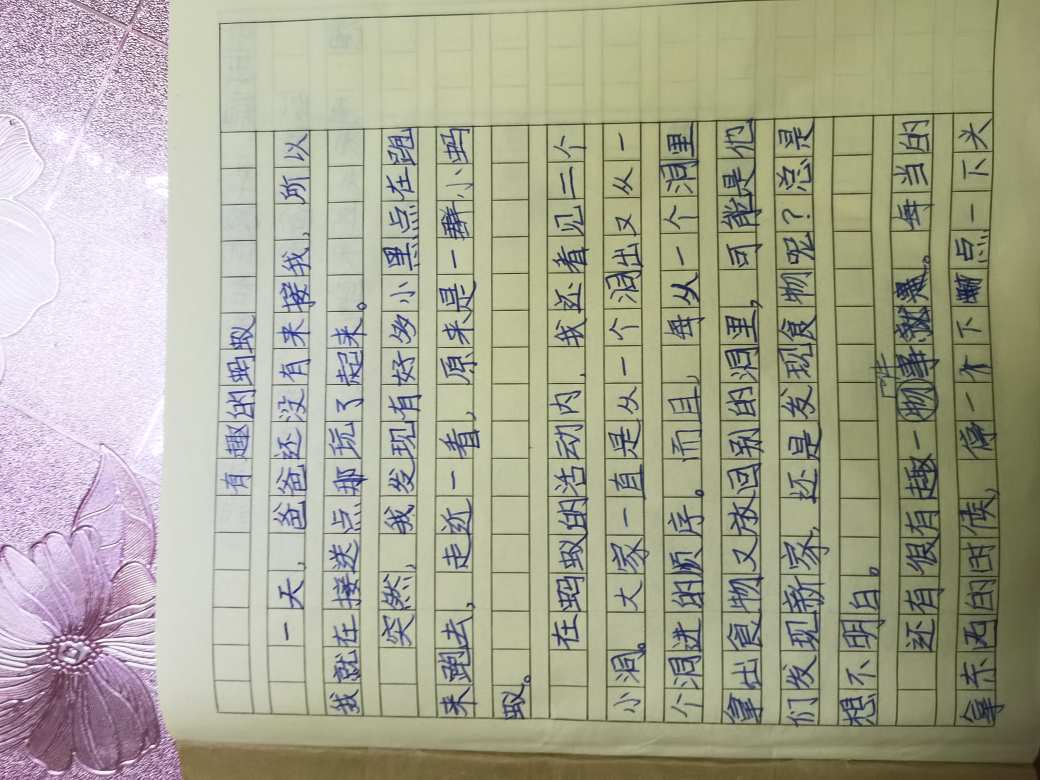 有趣的蚂蚁
一天，爸爸还没有来接我，所以
我就在接送点那玩了起来。
突然，我发现有好多小黑点在跑
来跑去，走近一看，原来是一群小蚂
蚁。
在蚂蚁的活动内，我还看见三个
小洞。大家一直是从一个洞出又从一
个洞进的顺序。而且，每从一个洞里
拿出食物又放回别的洞里，可能是他
们发现新家，还是发现食物呢？总是
想不明白。
还有很有趣一物事。每当的
拿东西的时候，停一个下点一下头